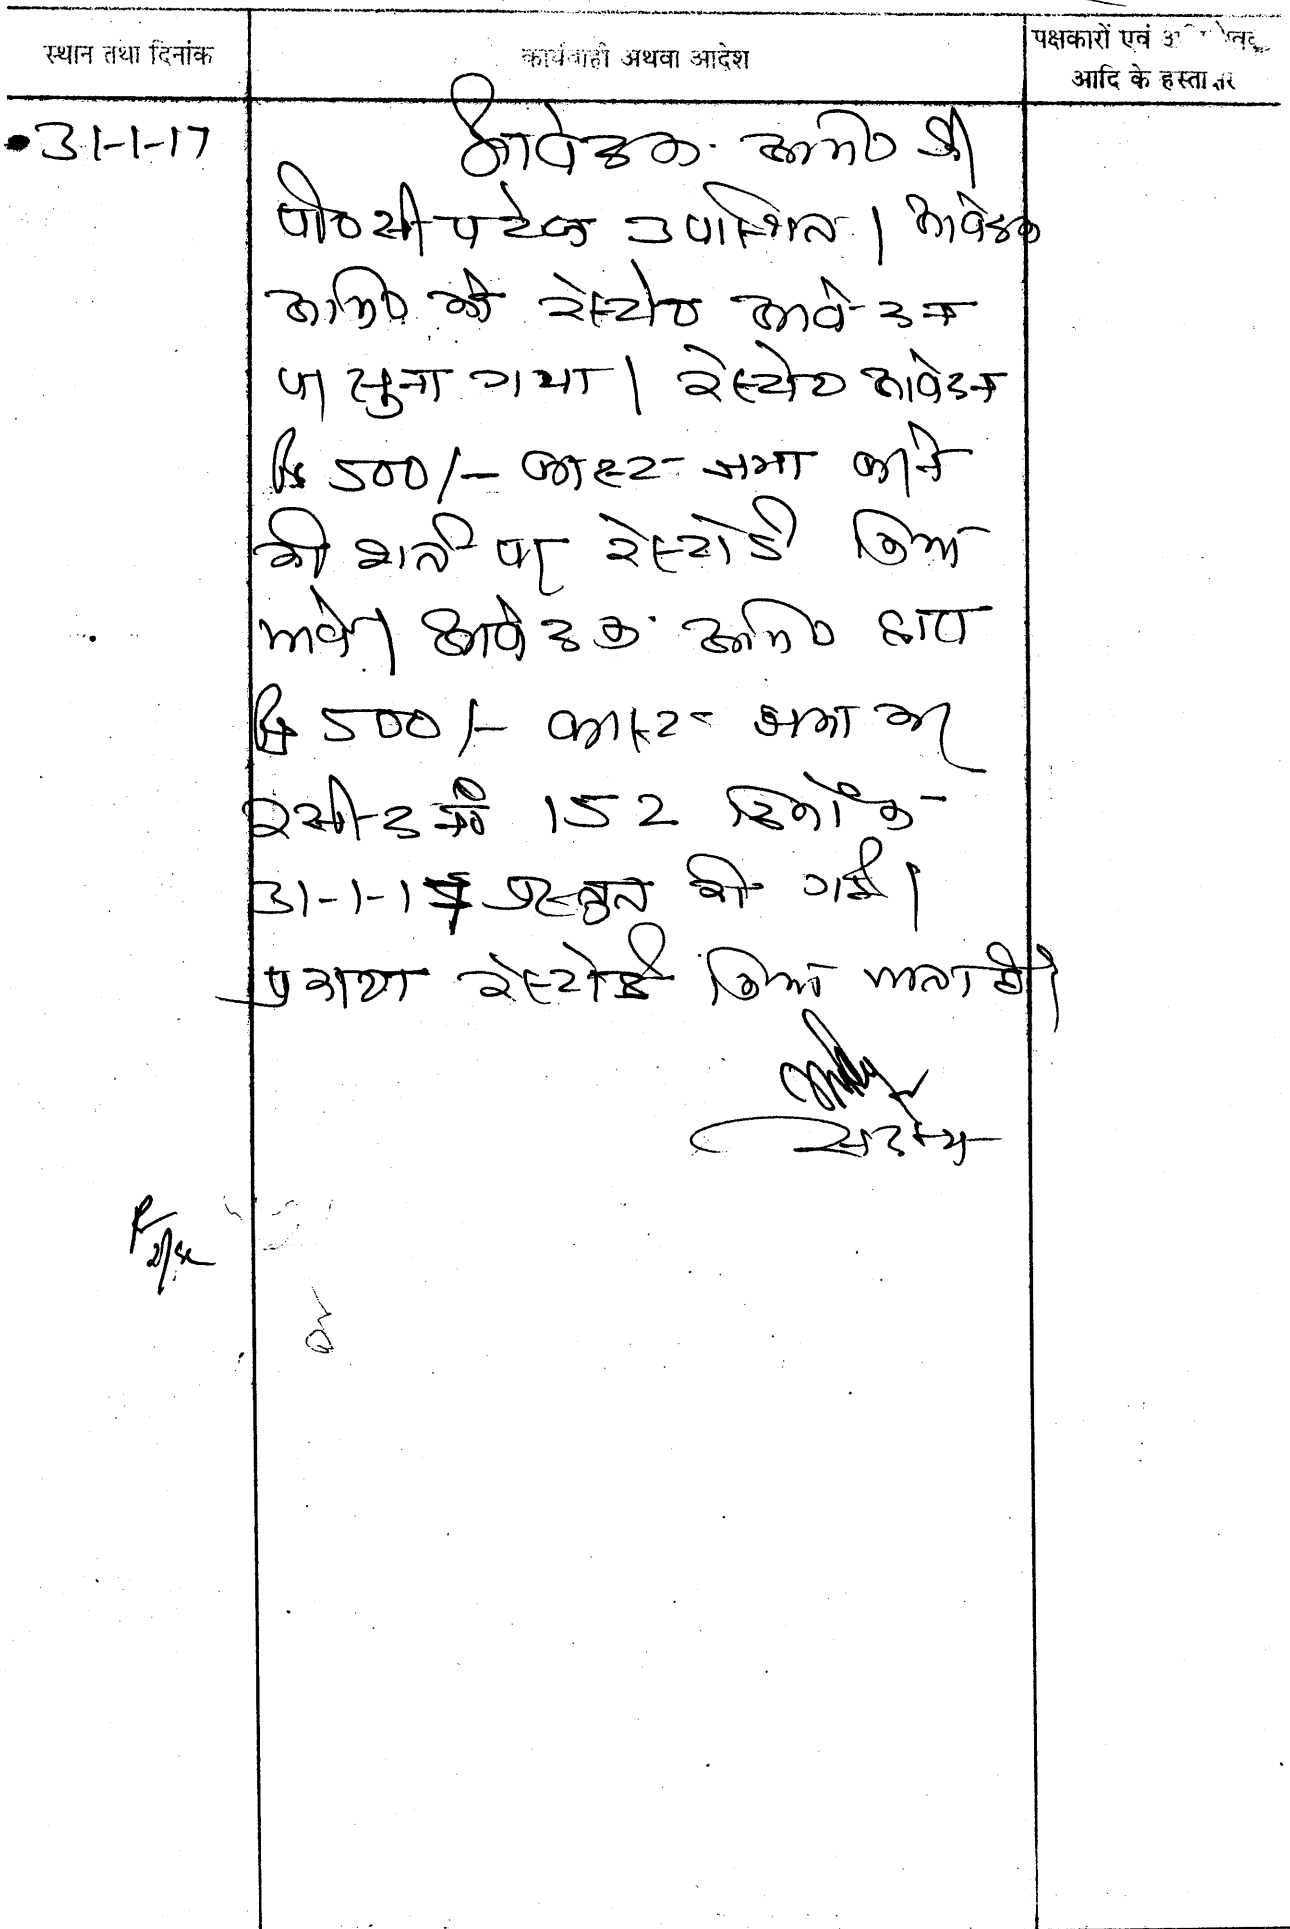 स्थान तथा दिनांक
कार्यवाही अथवा आदेश
पक्षकारों एवं
आदि के हस्ताक्षर
31-1-17
आवेदक अभि० श्री
पी०सी पटेल उपस्थित। आवेदक
अभि० को रेस्टो० आवेदन
पर सुना गया। रेस्टो० आवेदन
Rs 500/- कास्ट जमा करने
की शर्त पर रेस्टोर्ड किया
जावे। आवेदक अभि० द्वारा
Rs 500/- कास्ट जमा कर
रसीद नं० 152 दिनाँक
31-1-17 प्रस्तुत की गई।
प्रकरण रेस्टोर्ड किया जाता है।
सदस्य